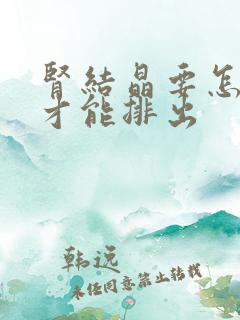 腎結晶要怎
才能排出
韩远
未经同意禁止转载